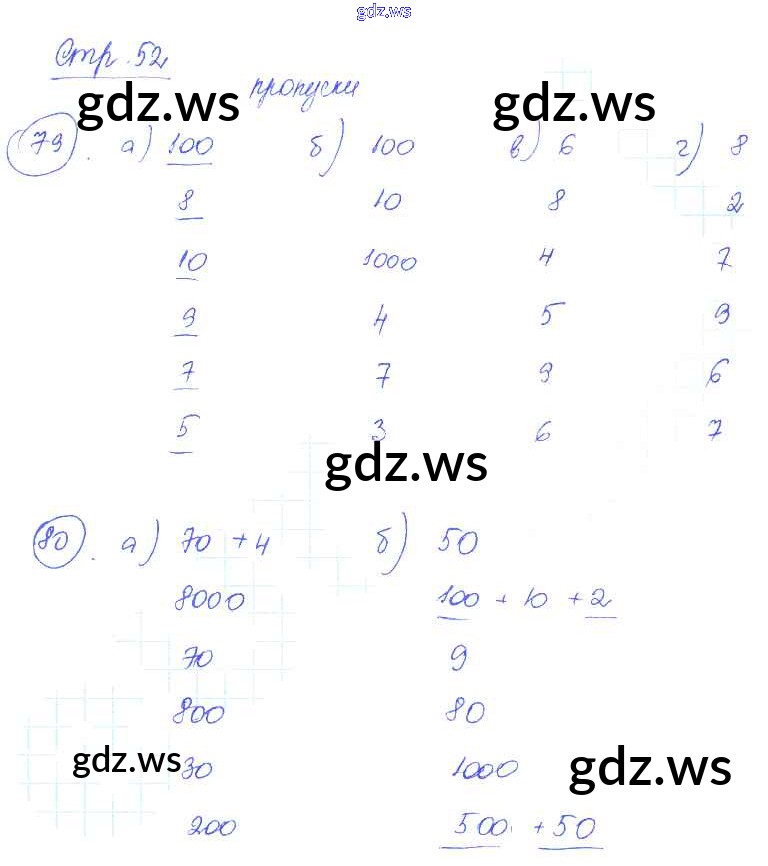 gdz.ws
Стр. 52
пропуски
gdz.ws gdz.ws
79. а) 100 б) 100 в) 6 г) 8
8 10 8 2
10 1000 4 7
9 4 5 9
7 7 9 6
5 3 6 7
gdz.ws
80. а) 70 + 4 б) 50
8000 100 + 10 + 2
70 9
800 80
gdz.ws 30 1000 gdz.ws
200 500 + 50